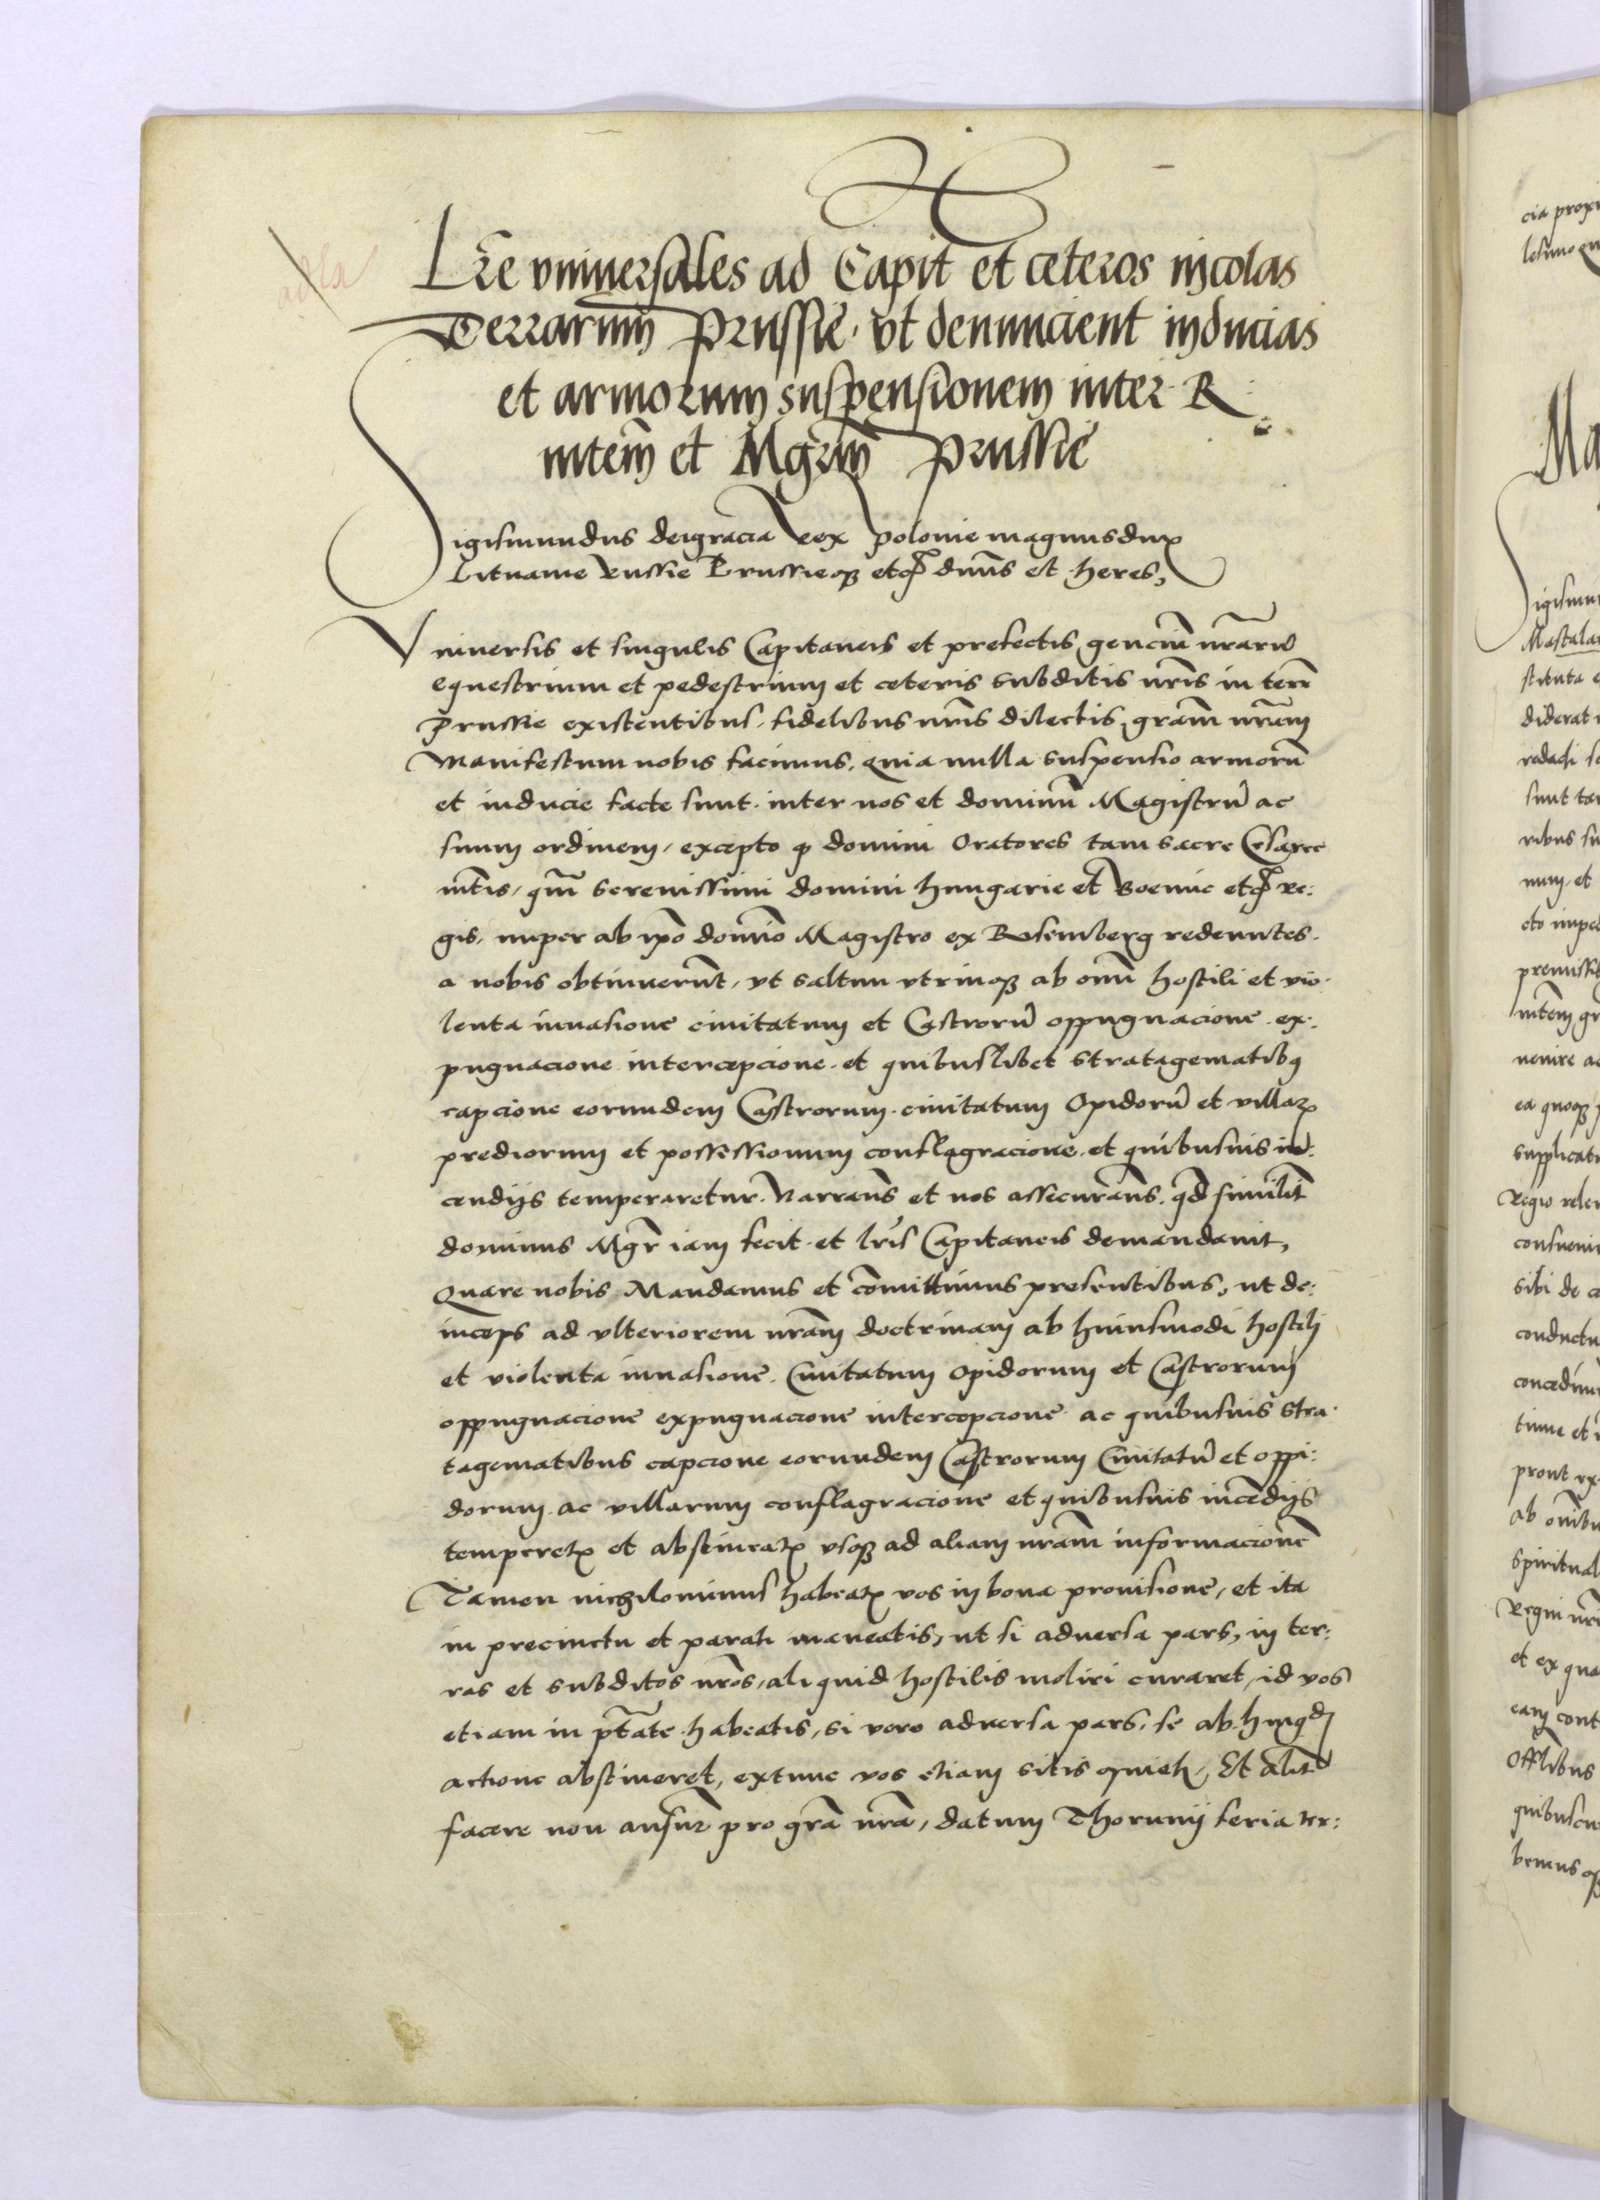 Lre vniuersales ad Capit et ceteros incolas
Terrarum Prussie. vt denuncient inducias
et armorum suspensionem inter R
mtem et Mgrm Prussie
Sigismundus dei gracia rex polonie magnus dux
Lituanie Russie Prussieqз etc dnus et heres,
Vniuersis et singulis Capitaneis et prefectis genciu nraru
equestrium et pedestrium et ceteris subditis nris in terr
Prussie existentibus. fidelibus nris dilectis, gram nram
Manifestum uobis facimus. quia nulla suspensio armoru
et inducie facte sunt. inter nos et dominu Magistru ac
suum ordinem, excepto q domini Oratores tam sacre Cesaree
mtis, qm serenissimi domini hungarie et Boemie etc re:
gis, nuper ab ipo domino Magistro ex Risemberg redeuntes.
a nobis obtinuerunt, vt saltim vtrinqз ab omi hostili et vio.
lenta inuasione ciuitatum et Castroru oppugnacione. ex:
pugnacione intercepcione. et quibuslibet stratagematibз
capcione eorundem Castrorum. ciuitatum Opidoru et villaꝝ
prediorum et possessionum conflagracione. et quibusuis in:
cendijs temperaretur. Narrans et nos assecurans. qd similit
dominus Mgr iam fecit. et lris Capitaneis demandauit,
Quare uobis Mandamus et comittimus presentibus, ut de:
inceps ad vlteriorem nram doctrinam ab huiusmodi hostili
et violenta inuasione. Ciuitatum opidorum et Castrorum
oppugnacione expugnacione intercepcione ac quibusuis stra.
tagematibus capcione eorundem Castrorum Ciuitatu et oppi:
dorum. ac villarum conflagracione et quibusuis incendijs
temperetꝭ et abstineatꝭ vsqз ad aliam nram informacione
Tamen nichilominus habeatꝭ vos in bona prouisione, et ita
in precinctu et parati maneatis, ut si aduersa pars, in ter:
ras et subditos nros, aliquid hostilis moliri curaret, id vos
etiam in ptate habeatis, si vero aduersa pars, se ab hmoi
actione abstineret, extunc vos etiam sitis quieti, Et alit
facere non ansur pro gra nra, datum Thorunij feria ter: